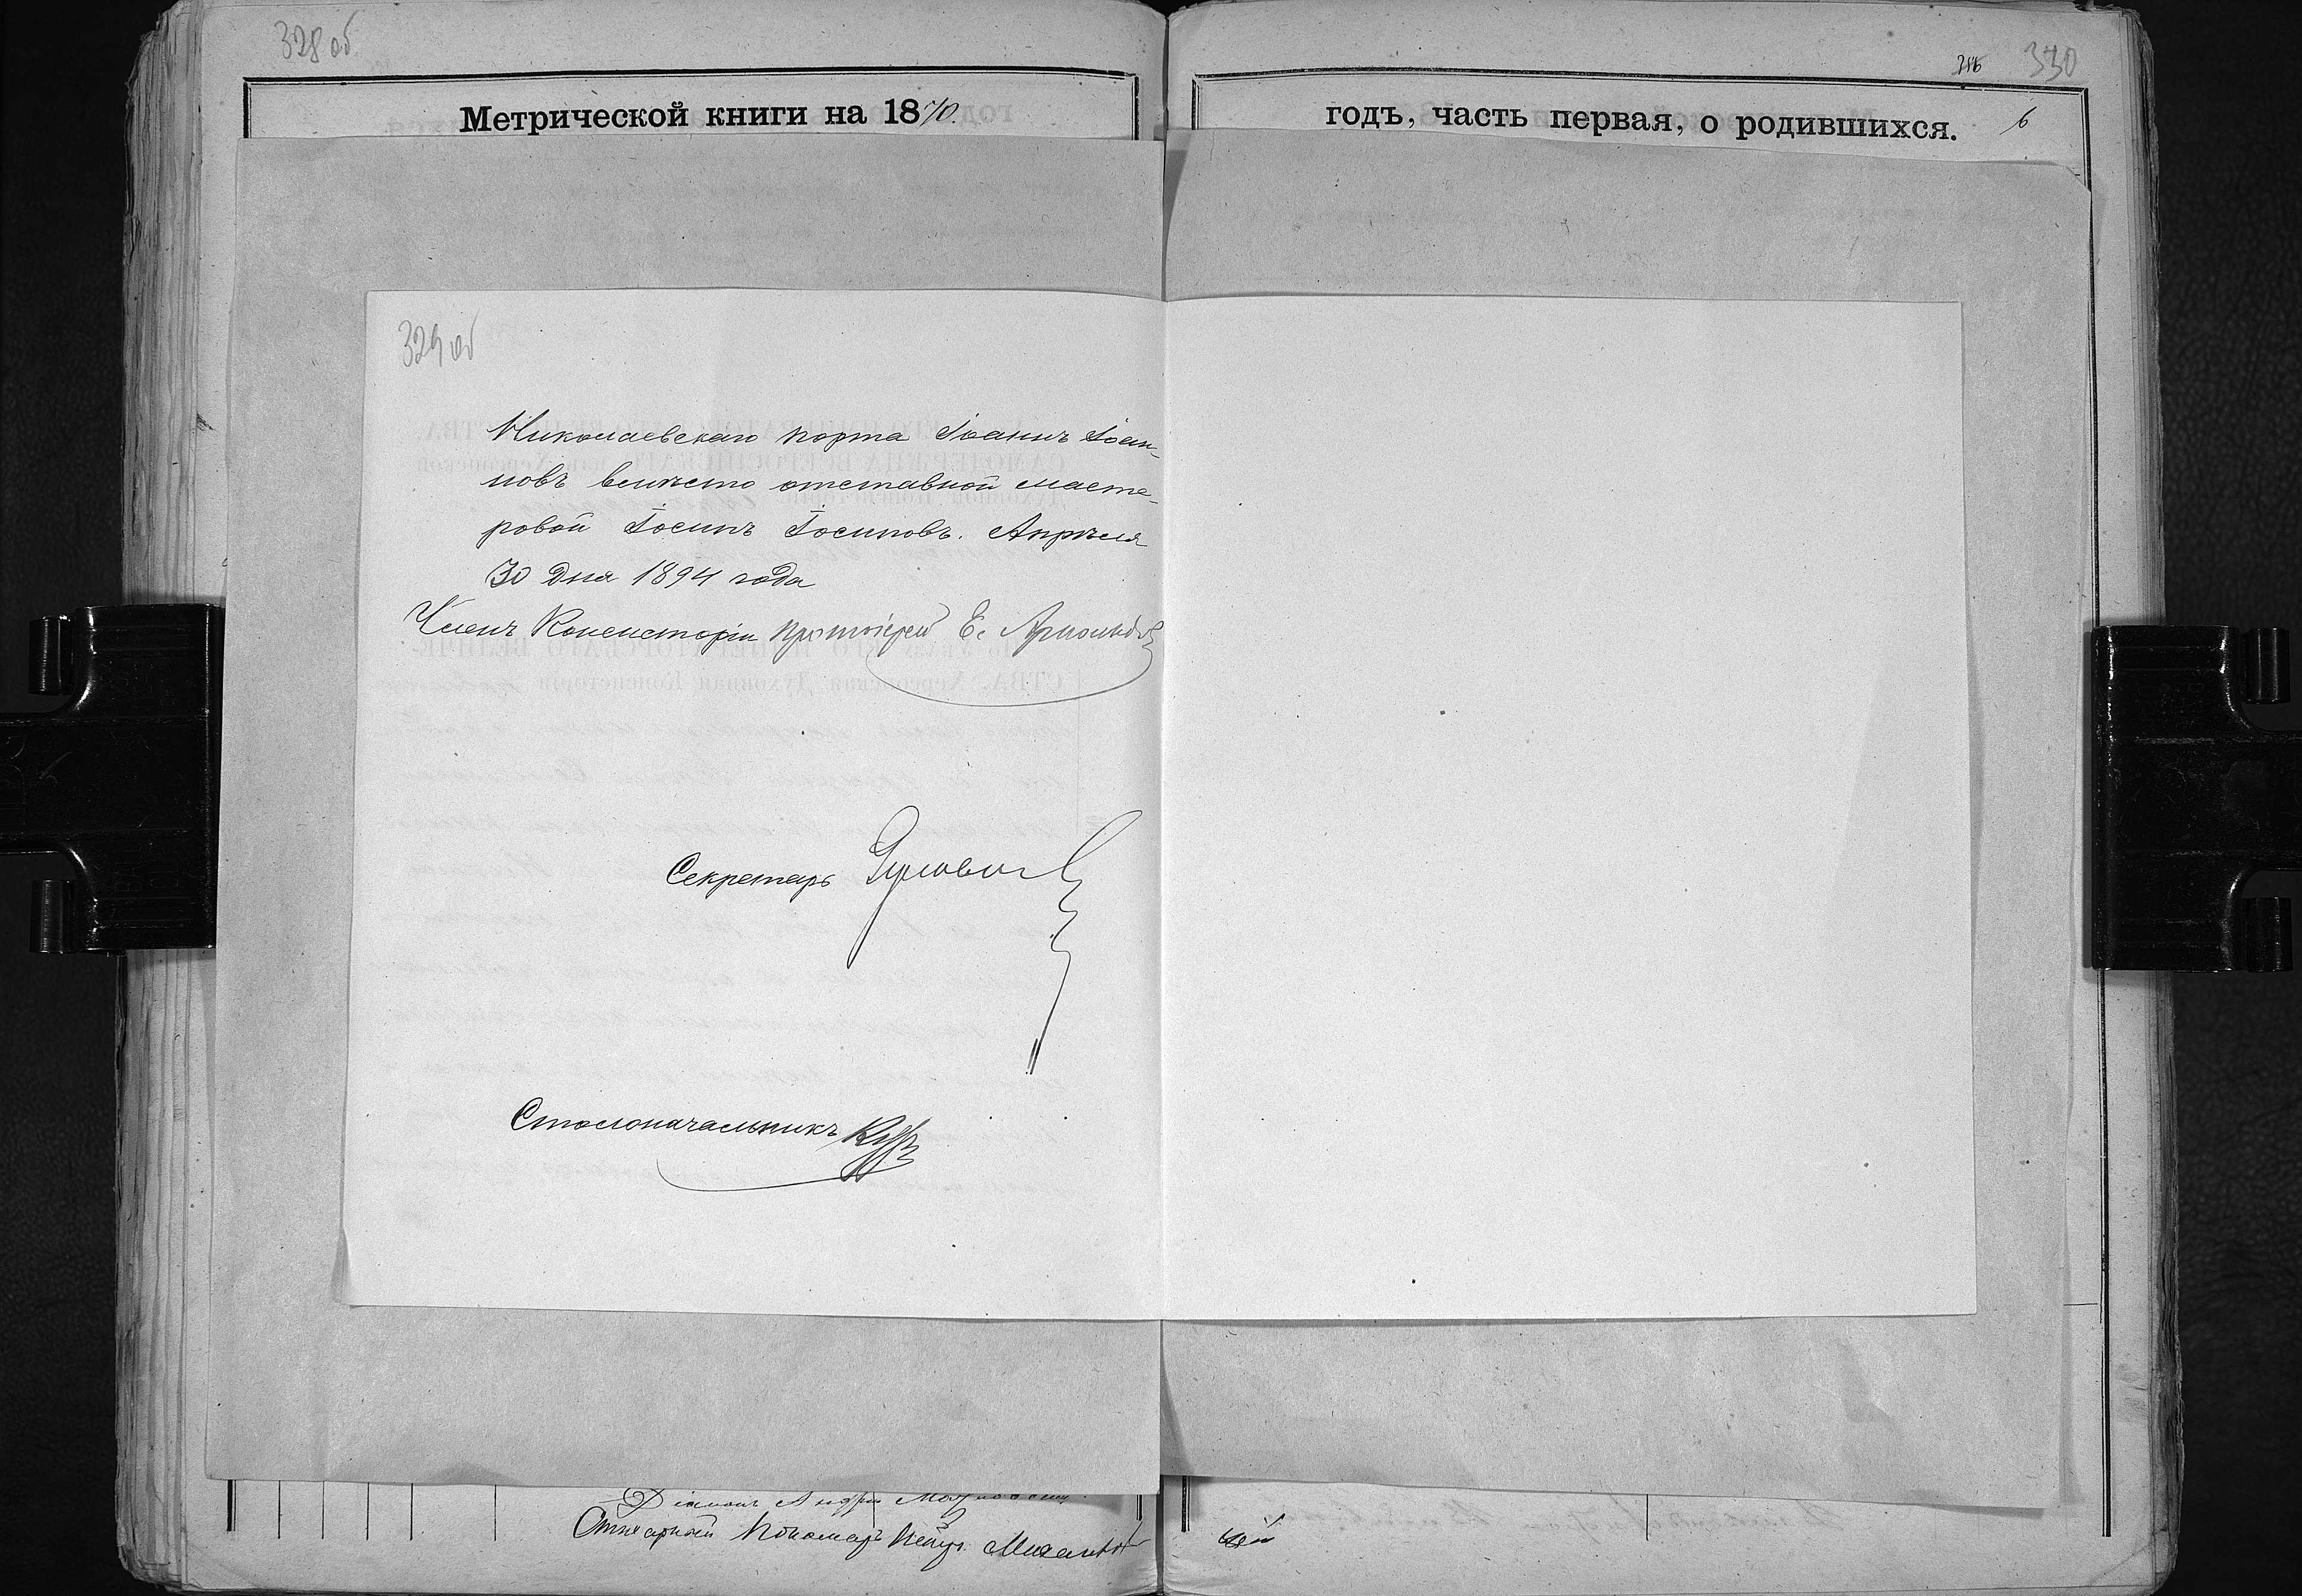 328 об
Метрической книги на 1870.
286 330
годъ, часть первая, о родившихся. 6
329 об
Николаевскаго порта Іоаннъ Іоан-
новъ вмѣсто отставной масте-
ровой Іосипъ Іосиповъ. Апрѣля
30 дня 1894 года
Членъ Консисторіи протоіерей Е.
Секретарь
Столоначальникъ
Діаконъ Андрей
Штатный Пономарь Петръ